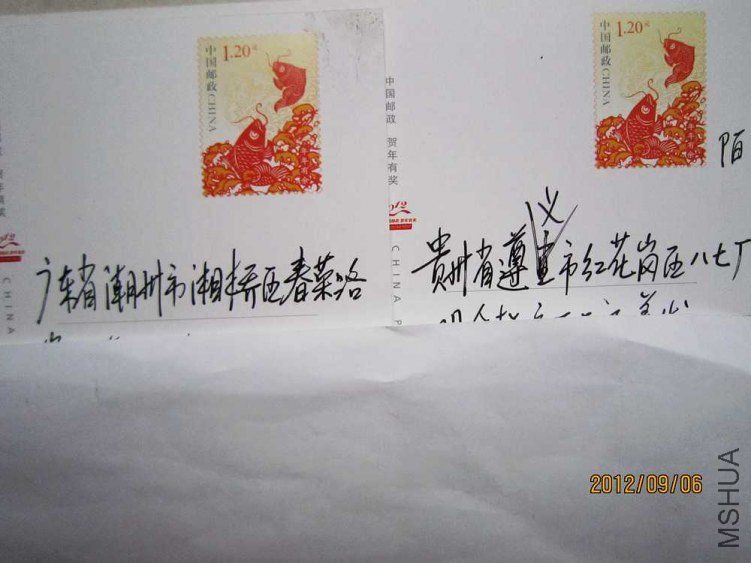 中国邮政 CHINA
1.20元
广东省潮州市湘桥区春荣路
CHINA
中国邮政 CHINA
1.20元
中国邮政 贺年有奖
陌
义
贵州省遵宜市红花岗区八七厂
CHINA P
2012/09/06
MSHUA